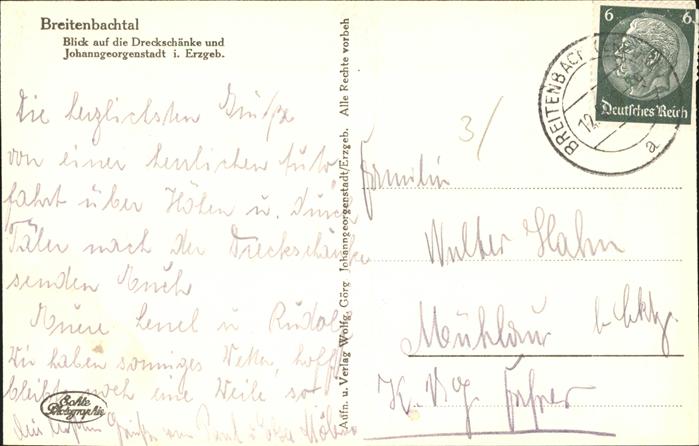 Breitenbachtal
Blick auf die Dreckschänke und
Johanngeorgenstadt i. Erzgeb.
Die herzlichsten Grüße
von einer herrlichen Auto
fahrt über Höhen u. durch
Täler nach der Dreckschänke
senden Euch
Eure Lenel u. Rudolf
Wir haben sonniges Wetter, hoffentl.
bleibt noch eine Weile so
Echte
Photographie
Grüße von Paul
Aufn. u. Verlag Wolfg. Görg Johanngeorgenstadt/Erzgeb. Alle Rechte vorbeh
3/
6 6
Deutsches Reich
BREITENBACH
12
a
Familie
Walter Hahn
Mühlau b. Chtz.